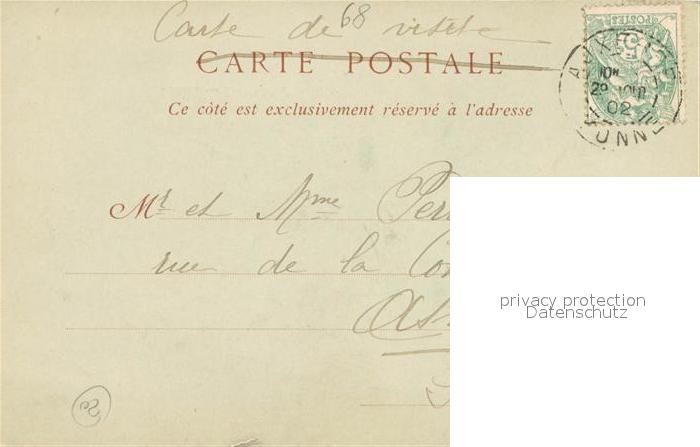 Carte de visite
68
CARTE POSTALE
Ce côté est exclusivement réservé à l'adresse
POSTES
AUXERRE
29 AOUT
02
YONNE
Mr et Mme
rue de la
privacy protection
Datenschutz
20